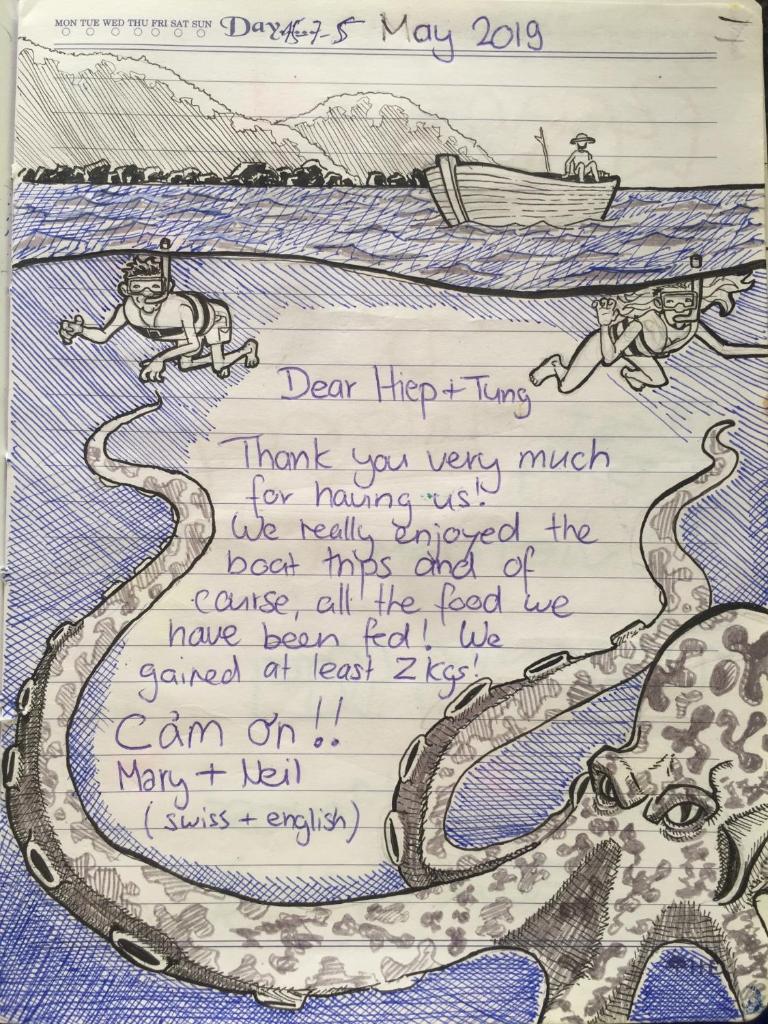 MON TUE WED THU FRI SAT SUN
Day 5 May 2019
Dear Hiep + Tung
Thank you very much
for having us!
We really enjoyed the
boat trips and of
course, all the food we
have been fed! We
gained at least 2 kgs!
Cảm ơn!!
Mary + Neil
(swiss + english)